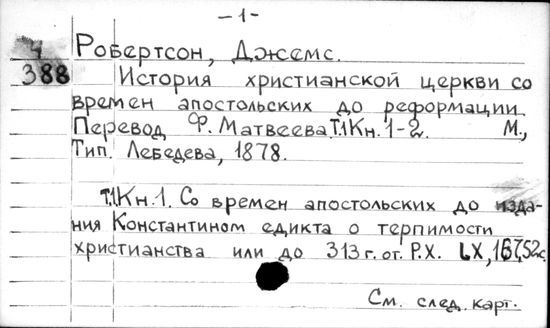 -1-
4 Робертсон, Джемс.
388 История христианской церкви со
времен апостольских до реформации.
Перевод Ф. Матвеева. Т.1 Кн. 1-2. М.,
Тип. Лебедева, 1878.
Т.1 Кн. 1. Со времен апостольских до изда-
ния Константином едикта о терпимости
христианства или до 313 г. от. Р.Х. LX,
См. след. карт.